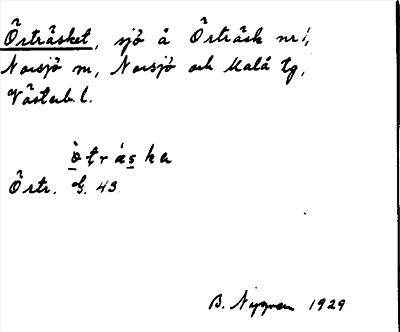 Örträsket, sjö å Örträsk nr 1,
Norsjö sn, Norsjö och Malå tg,
Västerb. l.
ò̱ṭràs̱ka
Örtr. G. 43.
B. Nygren 1929